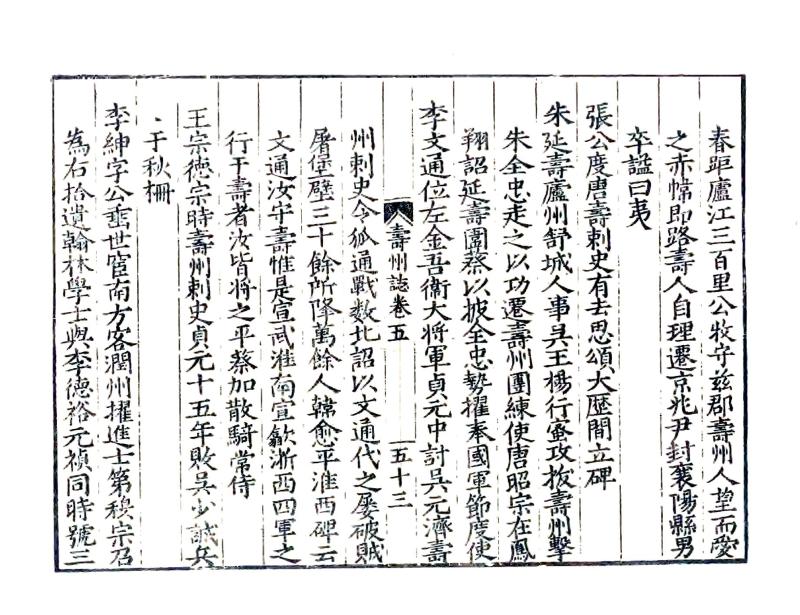 春距廬江三百里公牧守茲郡壽州人望而愛
之赤幘即路壽人自理遷京兆尹封襄陽縣男
卒謚曰夷
張公度唐壽刺史有去思頌大歷間立碑
朱延壽廬州舒城人事吳王楊行蜜攻拔壽州擊
朱全忠走之以功遷壽州團練使唐昭宗在鳳
翔詔延壽圍蔡以披全忠勢擢奉國軍節度使
李文通位左金吾衞大將軍貞元中討吳元濟壽
壽州誌卷五
五十三
州刺史令狐通戰数北詔以文通代之屡破賊
屠堡壁三十餘所降萬餘人韓愈平淮西碑云
文通汝守壽惟是宣武淮南宣歙浙西四軍之
行于壽者汝皆將之平蔡加散騎常侍
王宗德宗時壽州刺史貞元十五年敗吳少誠兵
于秋柵
李紳字公垂世宦南方客潤州擢進士第穆宗召
為右拾遺翰林學士與李德裕元禎同時號三